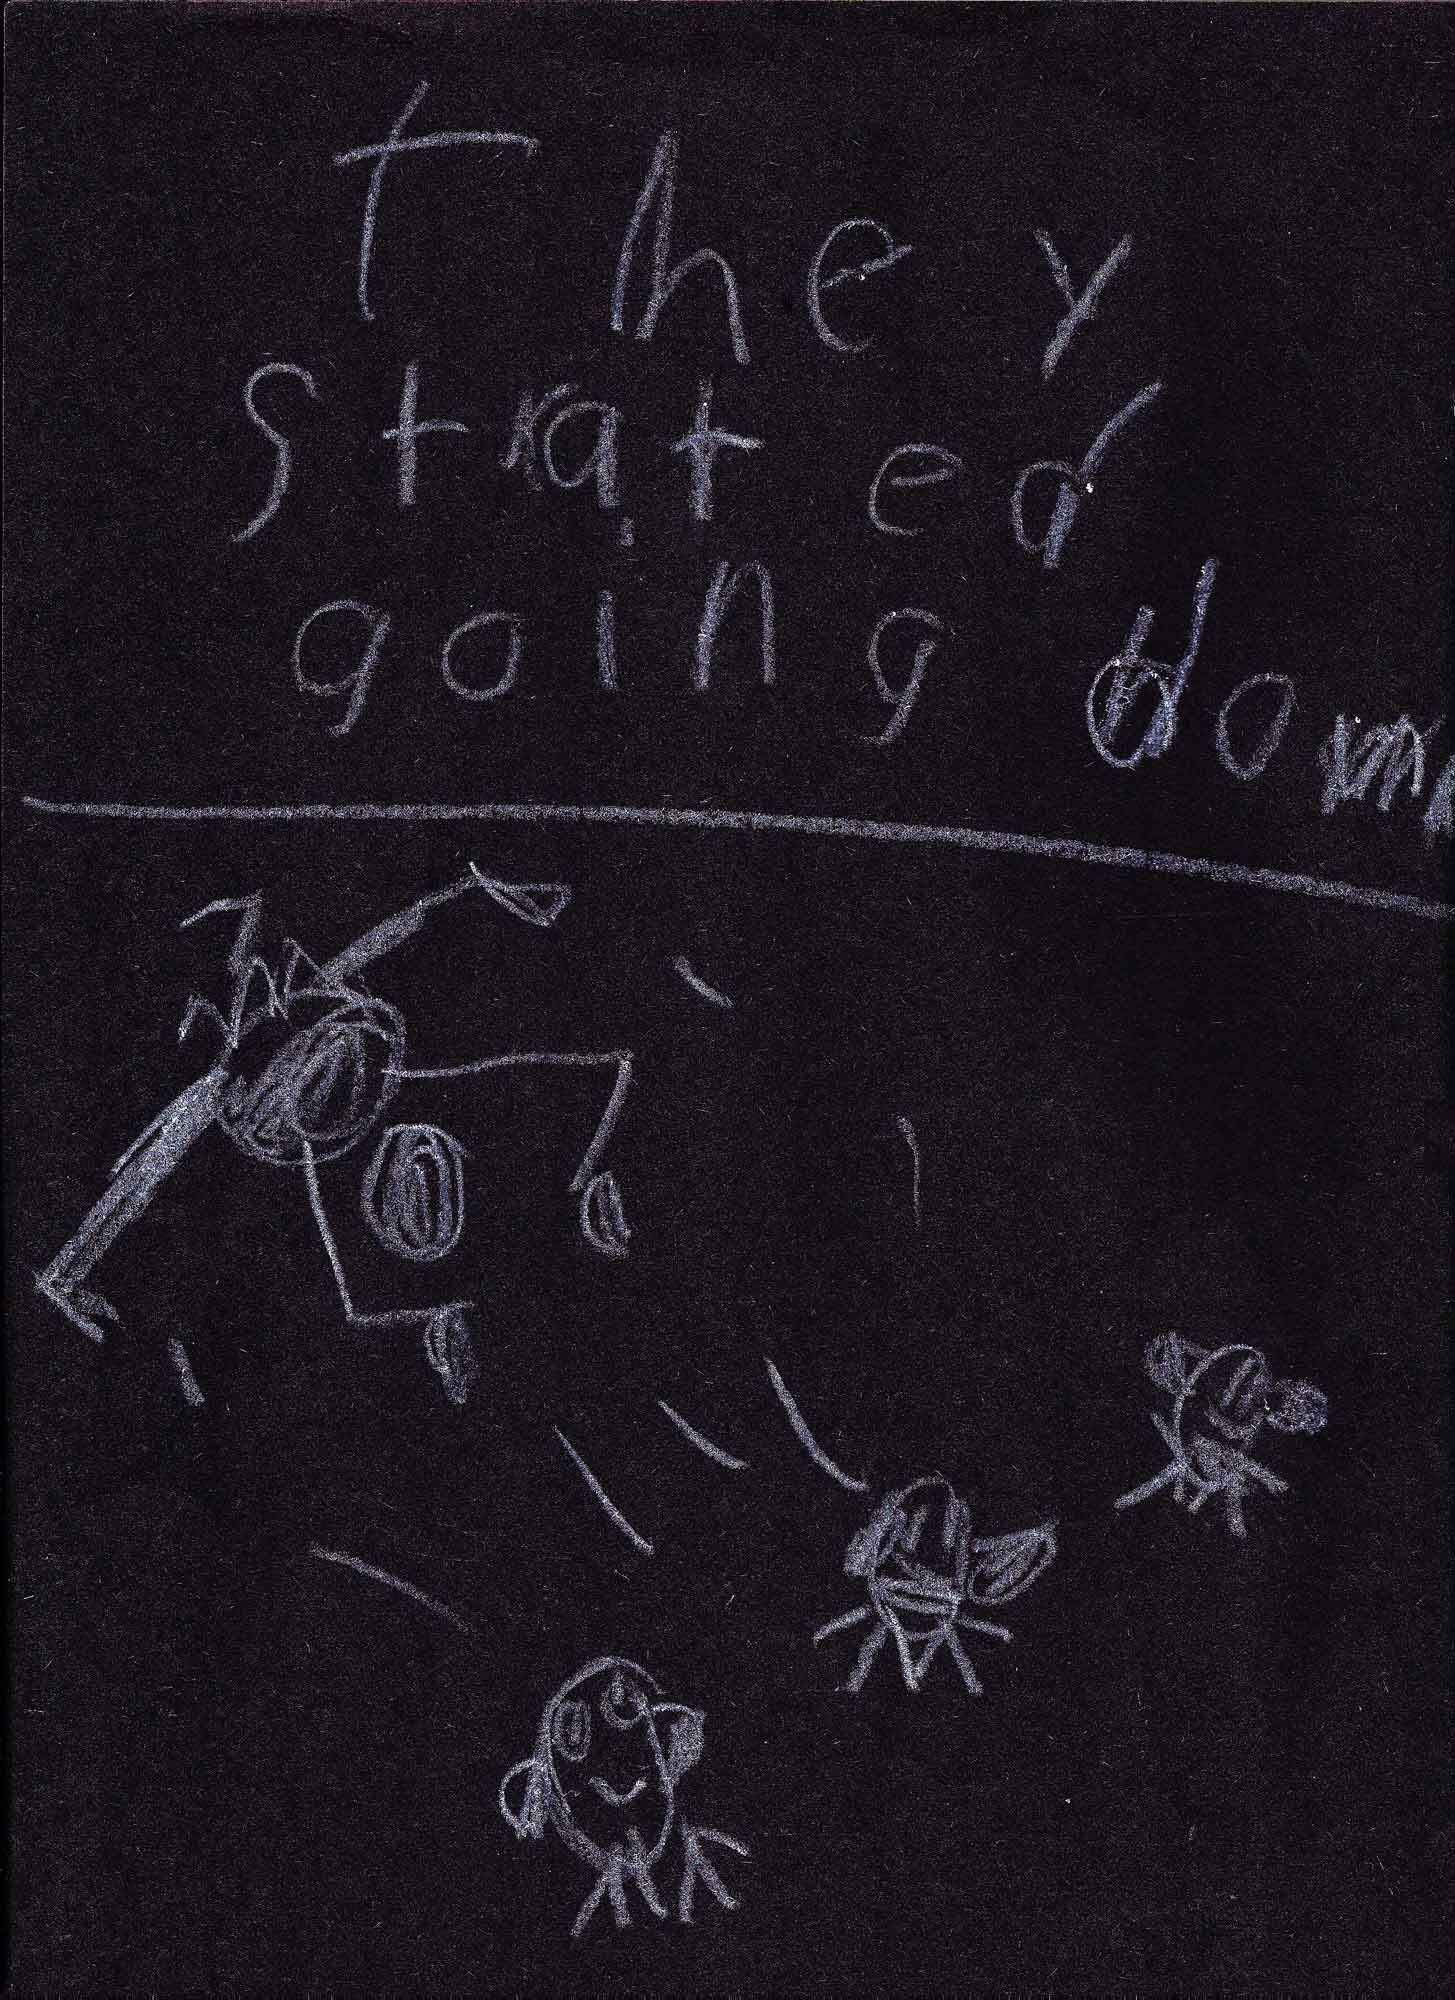 They
strated
going down